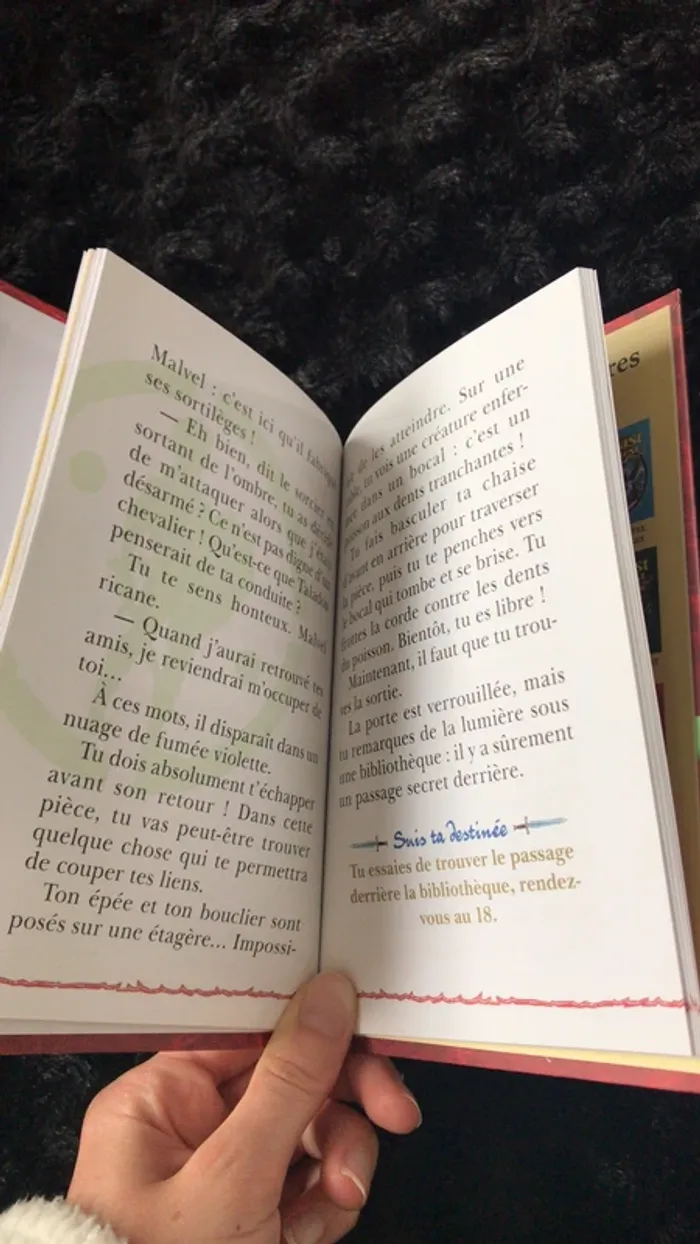 Malvel : c'est ici qu'il fabrique
ses sortilèges !
— Eh bien, dit le sorcier en
sortant de l'ombre, tu as décidé
de m'attaquer alors que j'étais
désarmé ? Ce n'est pas digne d'un
chevalier ! Qu'est-ce que Taladon
penserait de ta conduite ?
Tu te sens honteux. Malvel
ricane.
— Quand j'aurai retrouvé tes
amis, je reviendrai m'occuper de
toi...
À ces mots, il disparaît dans un
nuage de fumée violette.
Tu dois absolument t'échapper
avant son retour ! Dans cette
pièce, tu vas peut-être trouver
quelque chose qui te permettra
de couper tes liens.
Ton épée et ton bouclier sont
posés sur une étagère... Impossi-
de les atteindre. Sur une
tu vois une créature enfer-
mée dans un bocal : c'est un
poisson aux dents tranchantes !
Tu fais basculer ta chaise
d'avant en arrière pour traverser
la pièce, puis tu te penches vers
le bocal qui tombe et se brise. Tu
frottes la corde contre les dents
du poisson. Bientôt, tu es libre !
Maintenant, il faut que tu trou-
ves la sortie.
La porte est verrouillée, mais
tu remarques de la lumière sous
une bibliothèque : il y a sûrement
un passage secret derrière.
Suis ta destinée
Tu essaies de trouver le passage
derrière la bibliothèque, rendez-
vous au 18.